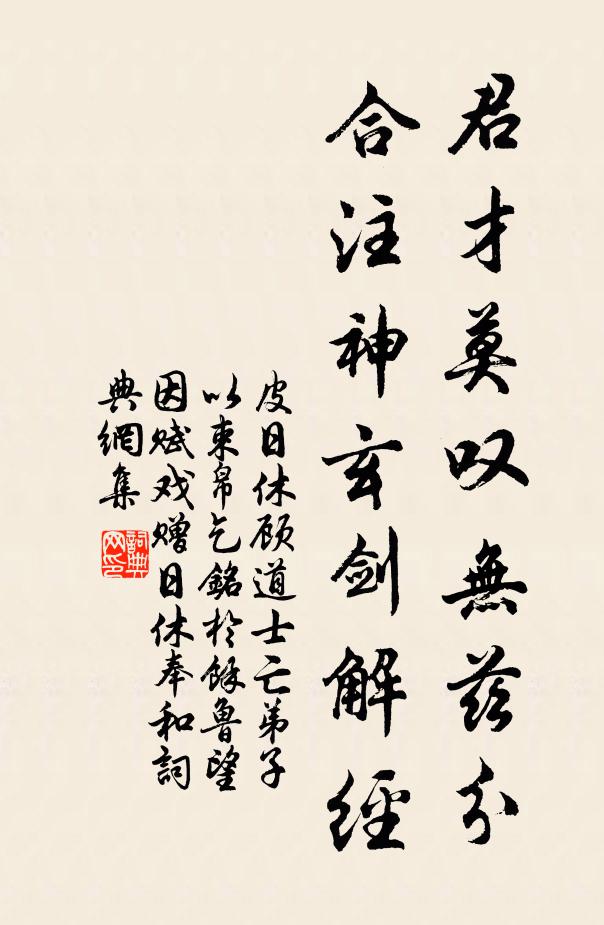 君才莫叹無兹分
合注神玄剑解經
皮日休顾道士亡弟子
以束帛乞銘於餘魯望
因赋戏赠日休奉和詞
典網集
詞典网印